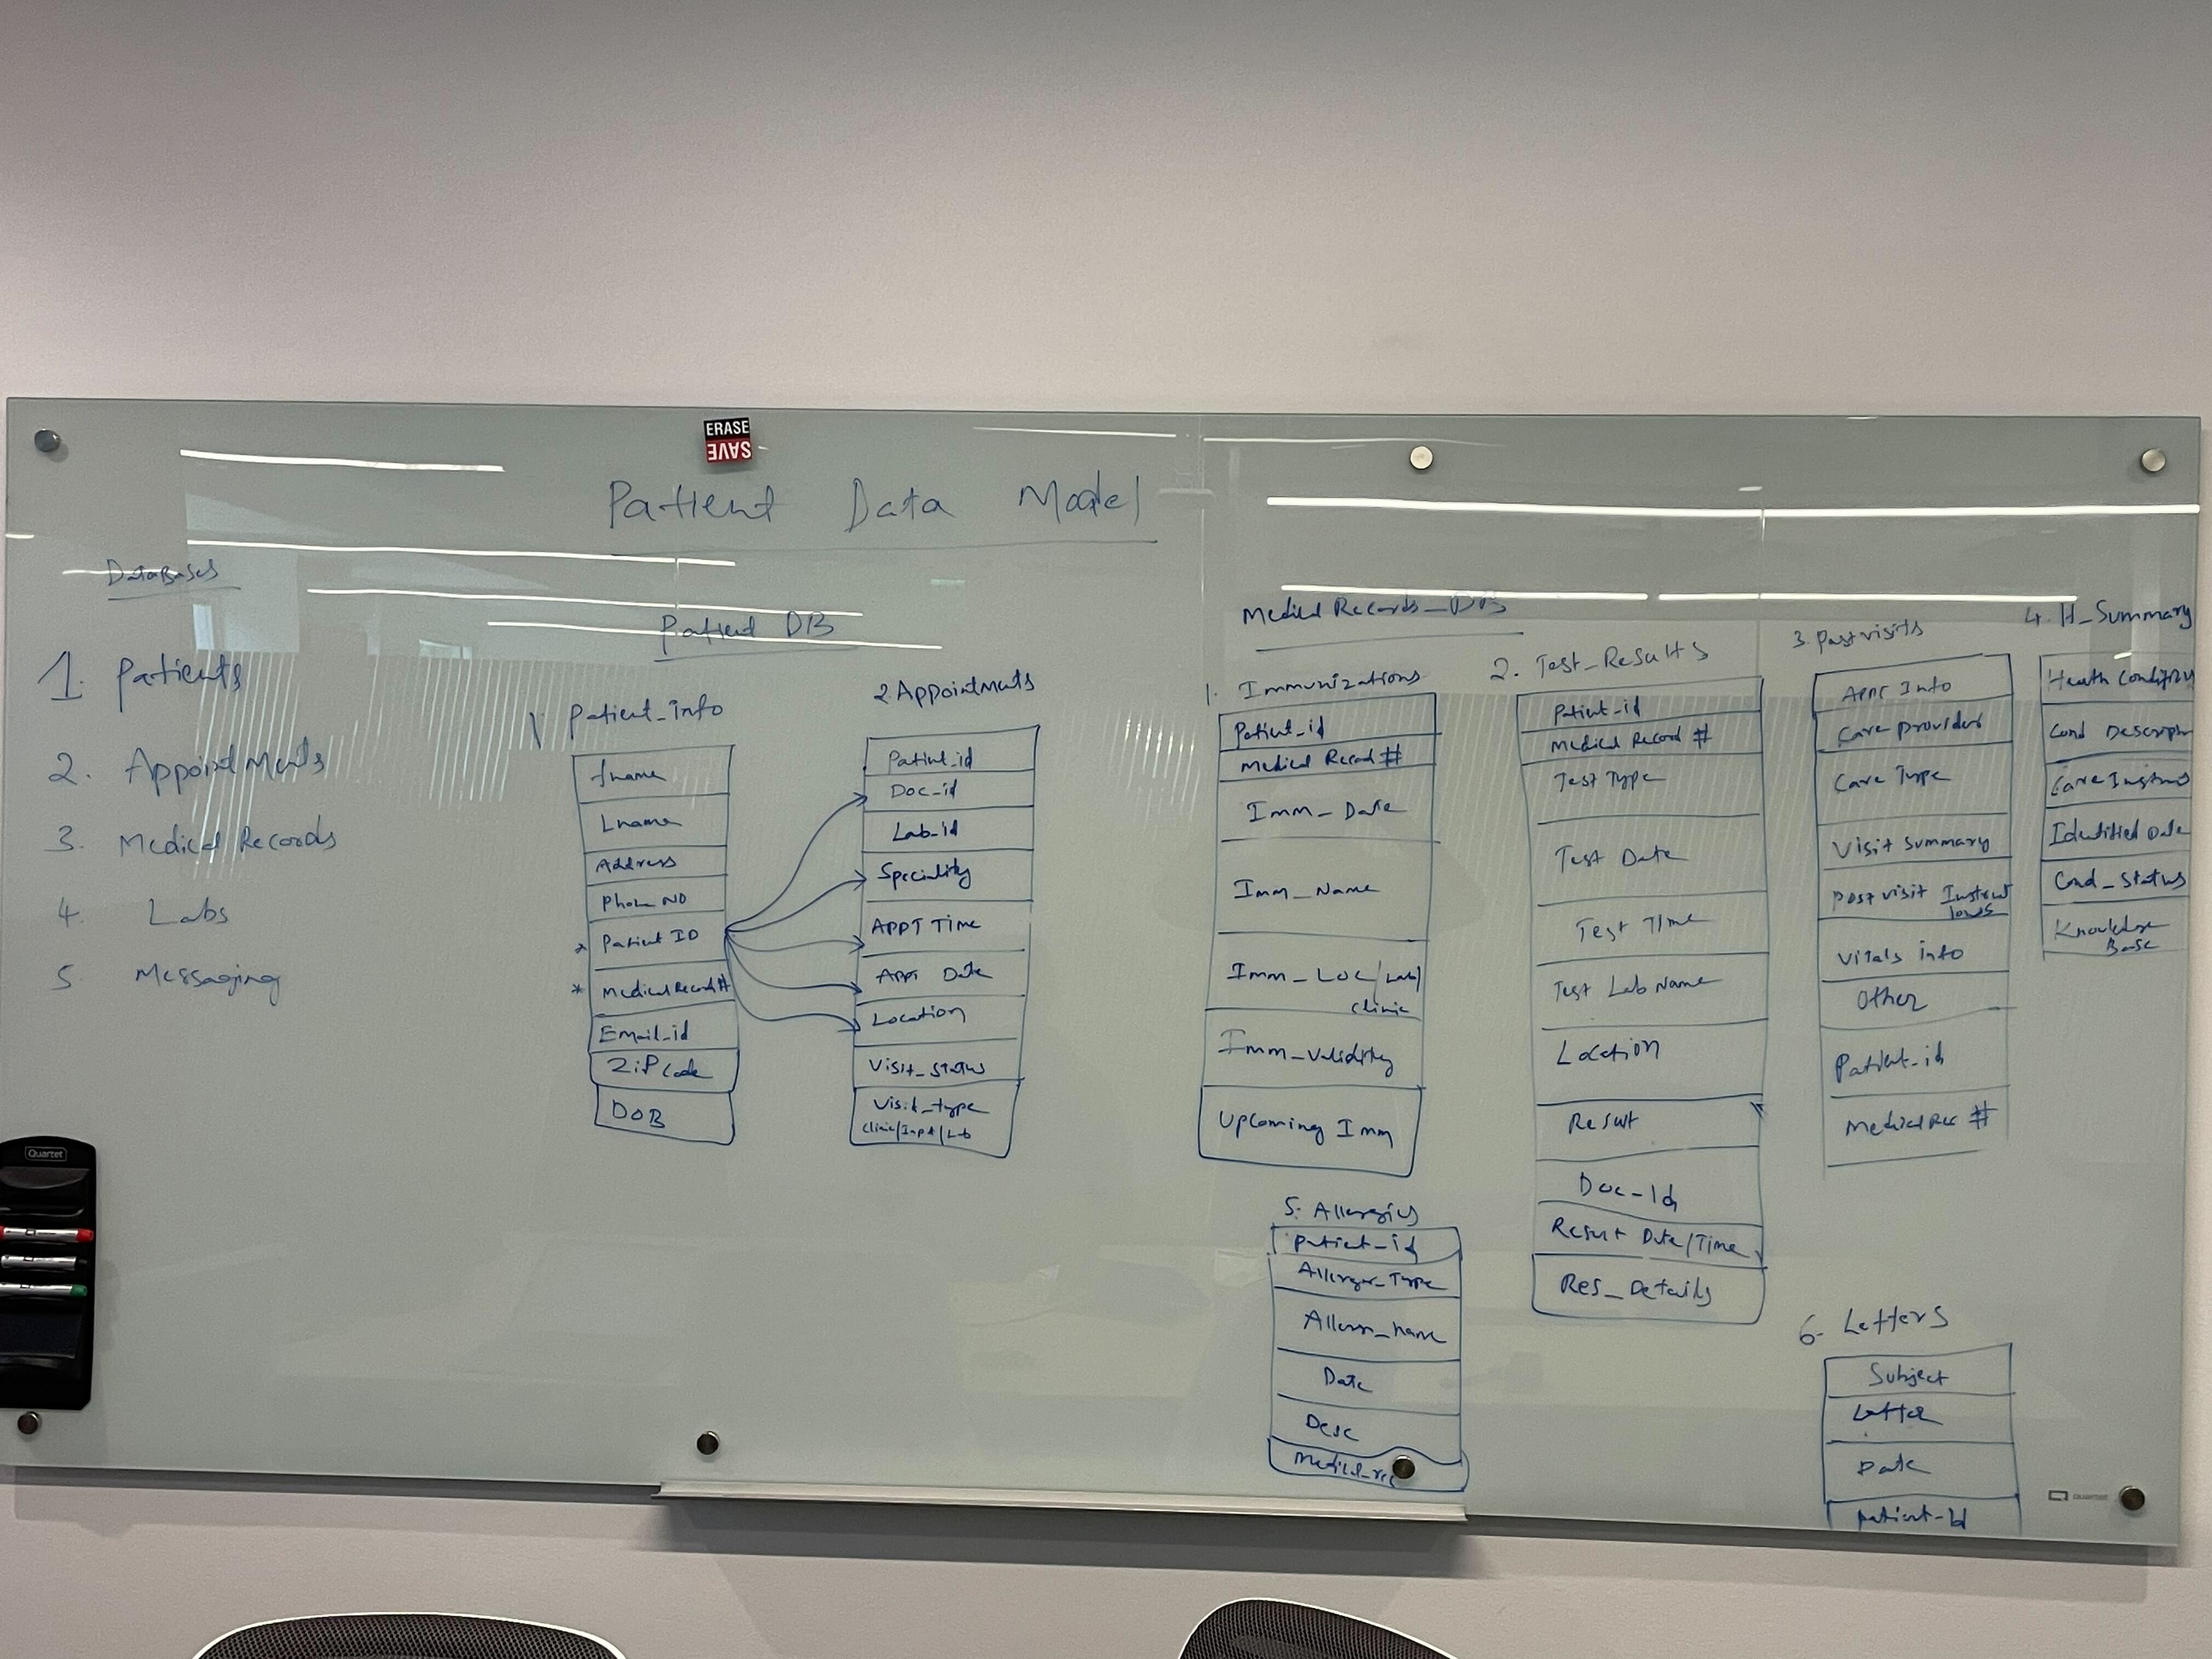 ERASE
SAVE
Patient Data Model
DataBases
1. Patients
2. Appointments
3. Medical Records
4. Labs
5. Messaging
Patient DB
1 Patient_info
fname
Lname
Address
Phone NO
* Patient ID
* Medical Record #
Email_id
ZiP Code
DOB
2 Appointments
Patient_id
Doc_id
Lab_id
Speciality
APPT TIME
Appt Date
Location
Visit_status
Visit_type
clinic/Inpt/Lab
Medical Records_DB
1. Immunizations
Patient_id
Medical Record #
Imm_Date
Imm_Name
Imm_Loc/Lab/
clinic
Imm_Validity
Upcoming Imm
2. Test_Results
Patient_id
Medical Record #
Test Type
Test Date
Test Time
Test Lab Name
Location
Result
Doc_Id
Result Date/Time
Res_Details
3. Past visits
Appt Info
Care Provider
Care Type
Visit Summary
Post visit Instruct
ions
Vitals info
Other
Patient_id
Medical Rec #
4. H_Summary
Health Condition
Cond Descrip
Care Instruc
Identified Date
Cond_Status
Knowledge
Base
5. Allergies
patient_id
Allergy_Type
Allergy_name
Date
Desc
Medical_rec
6- Letters
Subject
Letter
Date
patient_Id
Quartet
Quartet